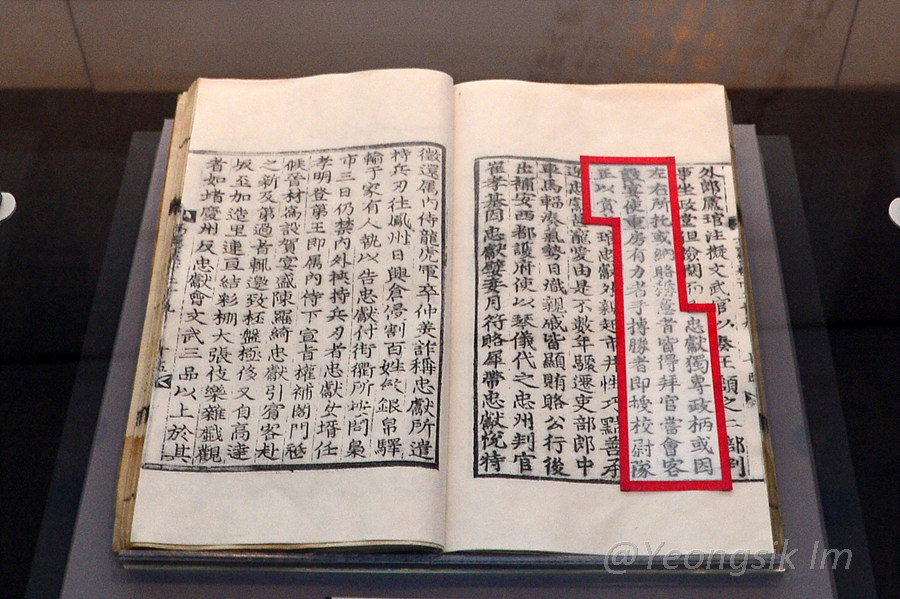 外郞盧琯注擬文武官以奏王頷之二部判
事坐政堂但檢閱而已忠獻獨專政柄或因
左右所托或納賂意者皆得拜官嘗會客
設宴使重房有力者手搏勝者即授校尉隊
正以賞忠獻外親起市井性巧黠善承
迎忠獻寵愛由是不數年驟遷吏部郎中
車馬輻湊氣勢日熾親戚皆顯賄賂公行後
出補安西都護府使以琴儀代之忠州判官
崔孝基因忠獻嬖妾月符賂犀帶忠獻悅特
徵還屬內侍龍虎軍卒仲美詐稱忠獻所遣
持兵刃往鳳州日興倉侵割百姓紋銀帛驛
輸于家有人執以告忠獻付街衢所拷問梟
市三日仍禁內外挾持兵刃者忠獻女壻任
孝明登第王即屬內侍下宣旨權補閤門祗
候晉材爲設賀宴盛陳羅綺忠獻引賓客赴
之新及第過者輒邀致杯盤極侈又自高達
坂至加造里連亘結彩棚大張伎樂雜戱觀
者如堵慶州反忠獻會文武三品以上於其
@Yeongsik Im